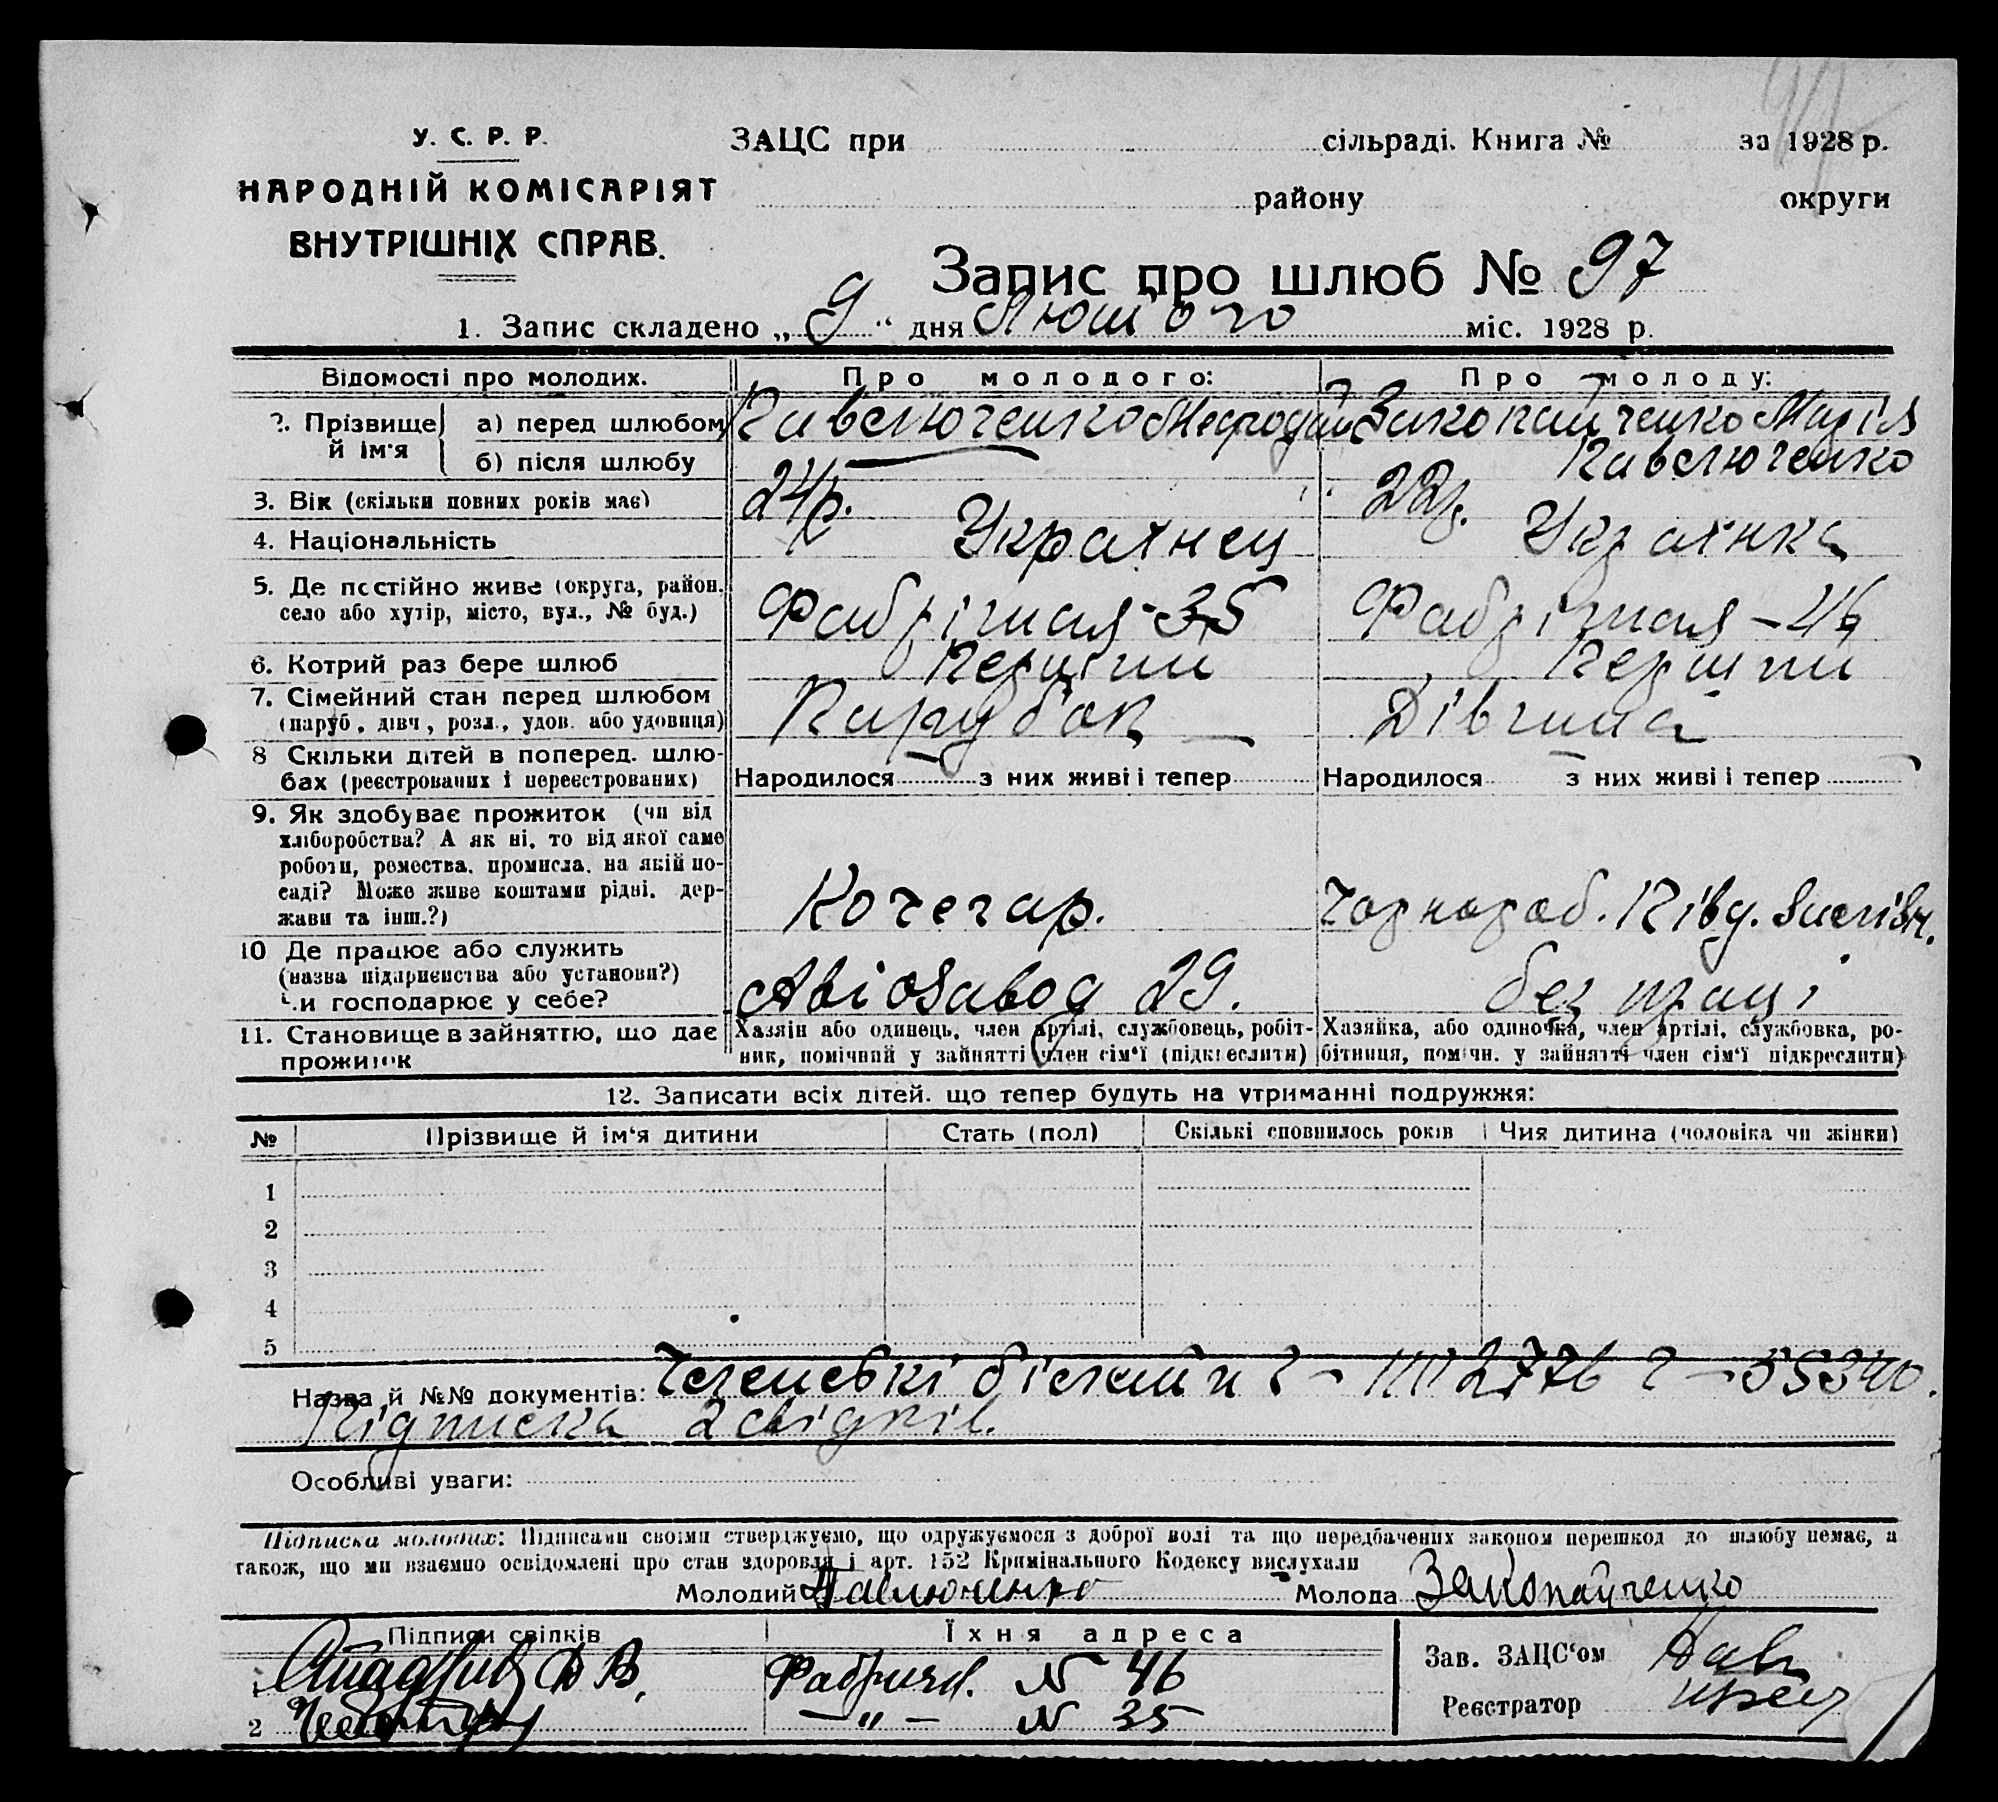 У. С. Р. Р.
НАРОДНІЙ КОМІСАРІЯТ
ВНУТРІШНІХ СПРАВ.
ЗАЦС при сільраді. Книга № за 1928 р.
району округи
Запис про шлюб № 97
1. Запис складено „ 9 “ дня Лютого міс. 1928 р.
Відомості про молодих. Про молодого: Про молоду:
2. Прізвище й ім'я
а) перед шлюбом Павлюченко Мефодий Закопайченко Марія
б) після шлюбу Павлюченко
3. Вік (скільки повних років має) 24 р. 22 р.
4. Національність Украінец Украінка
5. Де постійно живе (округа, район, село або хутір, місто, вул., № буд.) Фабрічная - 35 Фабрічная - 46
6. Котрий раз бере шлюб Перший Перший
7. Сімейний стан перед шлюбом (паруб., дівч., розл., удов. або удовиця) Парубок Дівчина
8 Скільки дітей в поперед. шлюбах (реєстрованих і нереєстрованих) Народилося — з них живі і тепер — Народилося — з них живі і тепер —
9. Як здобуває прожиток (чи від
хліборобства? А як ні, то від якої саме
роботи, ремества, промисла, на якій по-
саді? Може живе коштами рідні, дер-
жави та інш.?) Кочегар. Чорнороб.
10 Де працює або служить
(назва підприємства або установи?)
Чи господарює у себе? Авіозавод 29. без праці
11. Становище в зайняттю, що дає прожиток
Хазяін або одинець, член артілі, службовець, робіт-
ник, помічний у зайнятті член сім'ї (підкреслити)
Хазяйка, або одиночка, член артілі, службовка, ро-
бітниця, помічн. у зайнятті член сім'ї підкреслити)
12. Записати всіх дітей, що тепер будуть на утриманні подружжя:
№ Прізвище й ім'я дитини Стать (пол) Скількі сповнилось років Чия дитина (чоловіка чи жінки)
1
2
3
4
5
Назва й №№ документів: Членські білети
Підписка 2 свідків.
Особливі уваги:
Підписка молодих: Підписами своіми стверджуємо, що одружуємося з доброї волі та що передбачених законом перешкод до шлюбу немає, а
також, що ми взаємно освідомлені про стан здоровля і арт. 152 Кримінального Кодексу вислухали
Молодий Павлюченко Молода Закопайченко
Підписи свідків Їхня адреса
1 Фабричн. № 46
2 — " — № 35
Зав. ЗАЦС'ом
Реєстратор